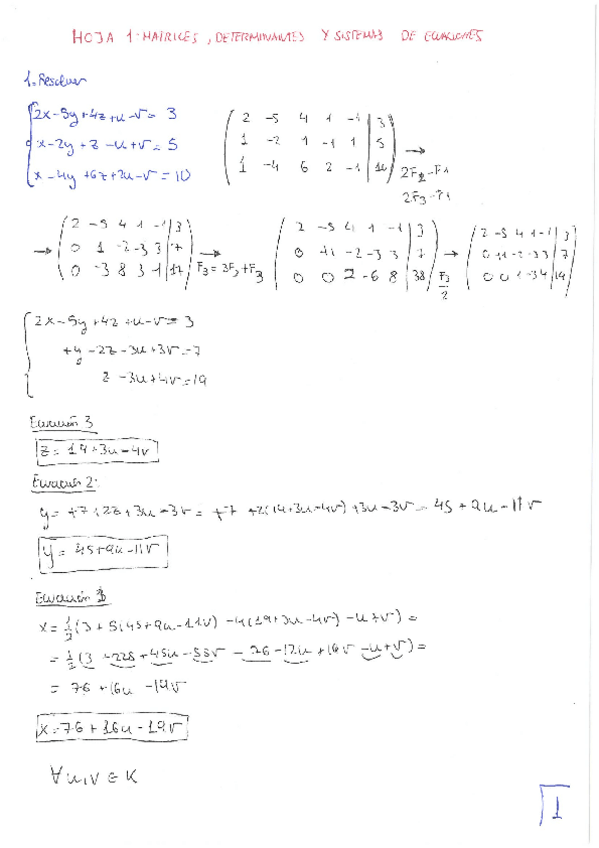 HOJA 1: MATRICES, DETERMINANTES Y SISTEMAS DE ECUACIONES
1. Resolver
2x-5y+4z+u-v= 3
x-2y+z-u+v= 5
x-4y+6z+2u-v=10
2 -5 4 1 -1 | 3
1 -2 1 -1 1 | 5
1 -4 6 2 -1 | 10
→
2F2-F1
2F3-F1
→
2 -5 4 1 -1 | 3
0 1 -2 -3 3 | 7
0 -3 8 3 -1 | 17
→
F3=3F2+F3
2 -5 4 1 -1 | 3
0 +1 -2 -3 3 | 7
0 0 2 -6 8 | 38
→
F3/2
2 -5 4 1 -1 | 3
0 +1 -2 -3 3 | 7
0 0 1 -3 4 | 19
2x-5y+4z+u-v= 3
+y-2z-3u+3v=7
z-3u+4v=19
Ecuación 3
z= 19+3u-4v
Ecuación 2:
y= +7+2z+3u-3v= +7 +2(19+3u-4v)+3u-3v= 45+9u-11v
y= 45+9u-11v
Ecuación 1
x= 1/2(3+5(45+9u-11v)-4(19+3u-4v)-u+v)=
= 1/2(3+225+45u-55v-76-12u+16v-u+v)=
= 76+16u-19v
x=76+16u-19v
∀u,v∈K
1